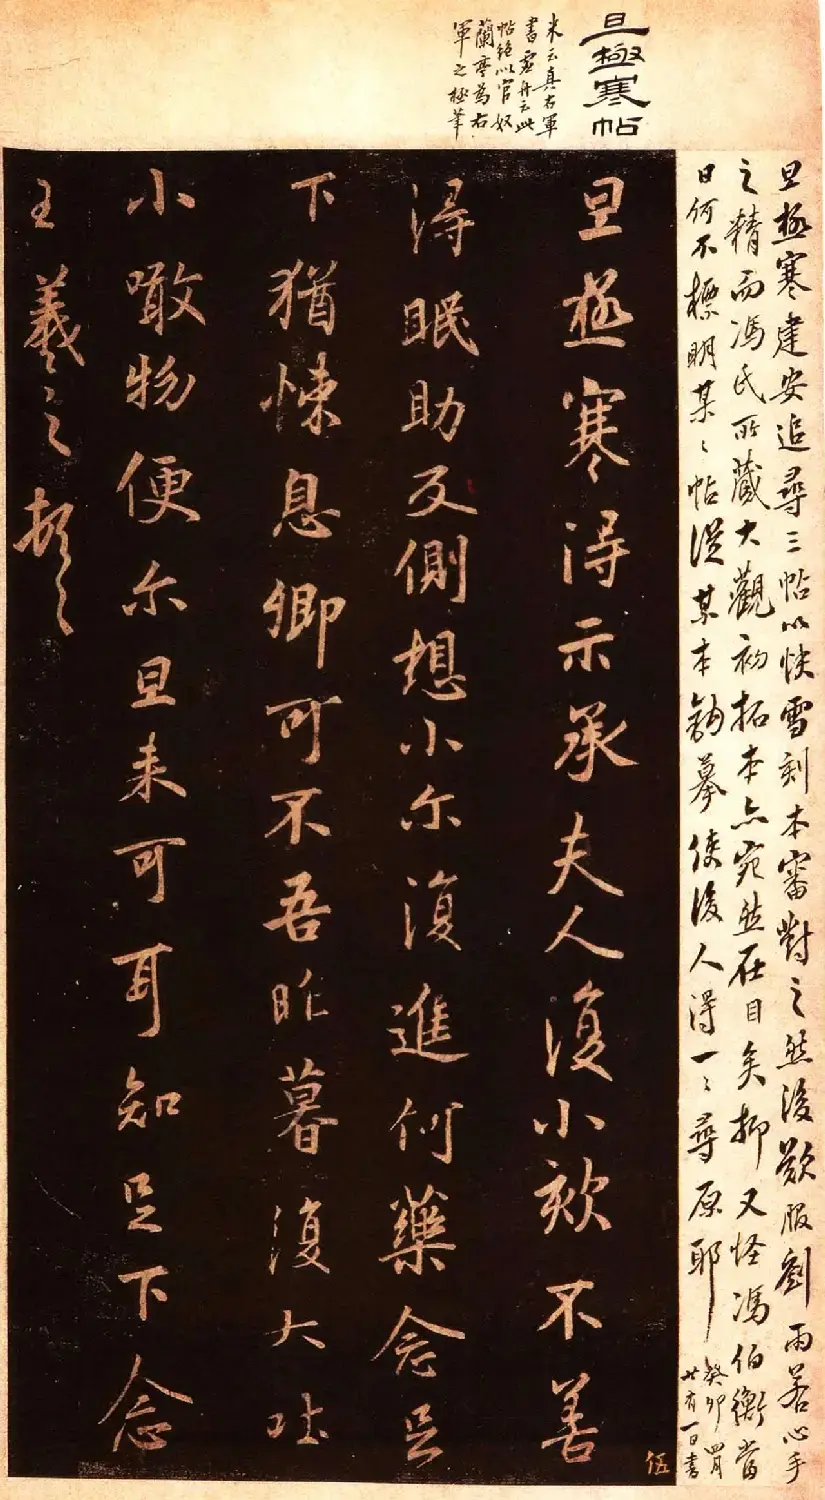 旦極寒帖
米云真右軍
書虛舟云此
帖絕以官奴
蘭亭為右
軍之極筆
旦極寒建安追尋三帖以快雪刻本審對之然後歎服劉雨若心手
之精而馮氏所藏大觀初拓本亦宛然在目矣抑又怪馮伯衡當
日何不標明某〻帖從某本鉤摹使後人得一〻尋原耶
癸卯四月
廿有一日書
旦極寒得示承夫人復小欬不善
得眠助反側想小尔復進何藥念足
下猶悚息卿可不吾昨暮復大吐
小噉物便尔旦来可可耳知足下念
王羲之頓〻
伍